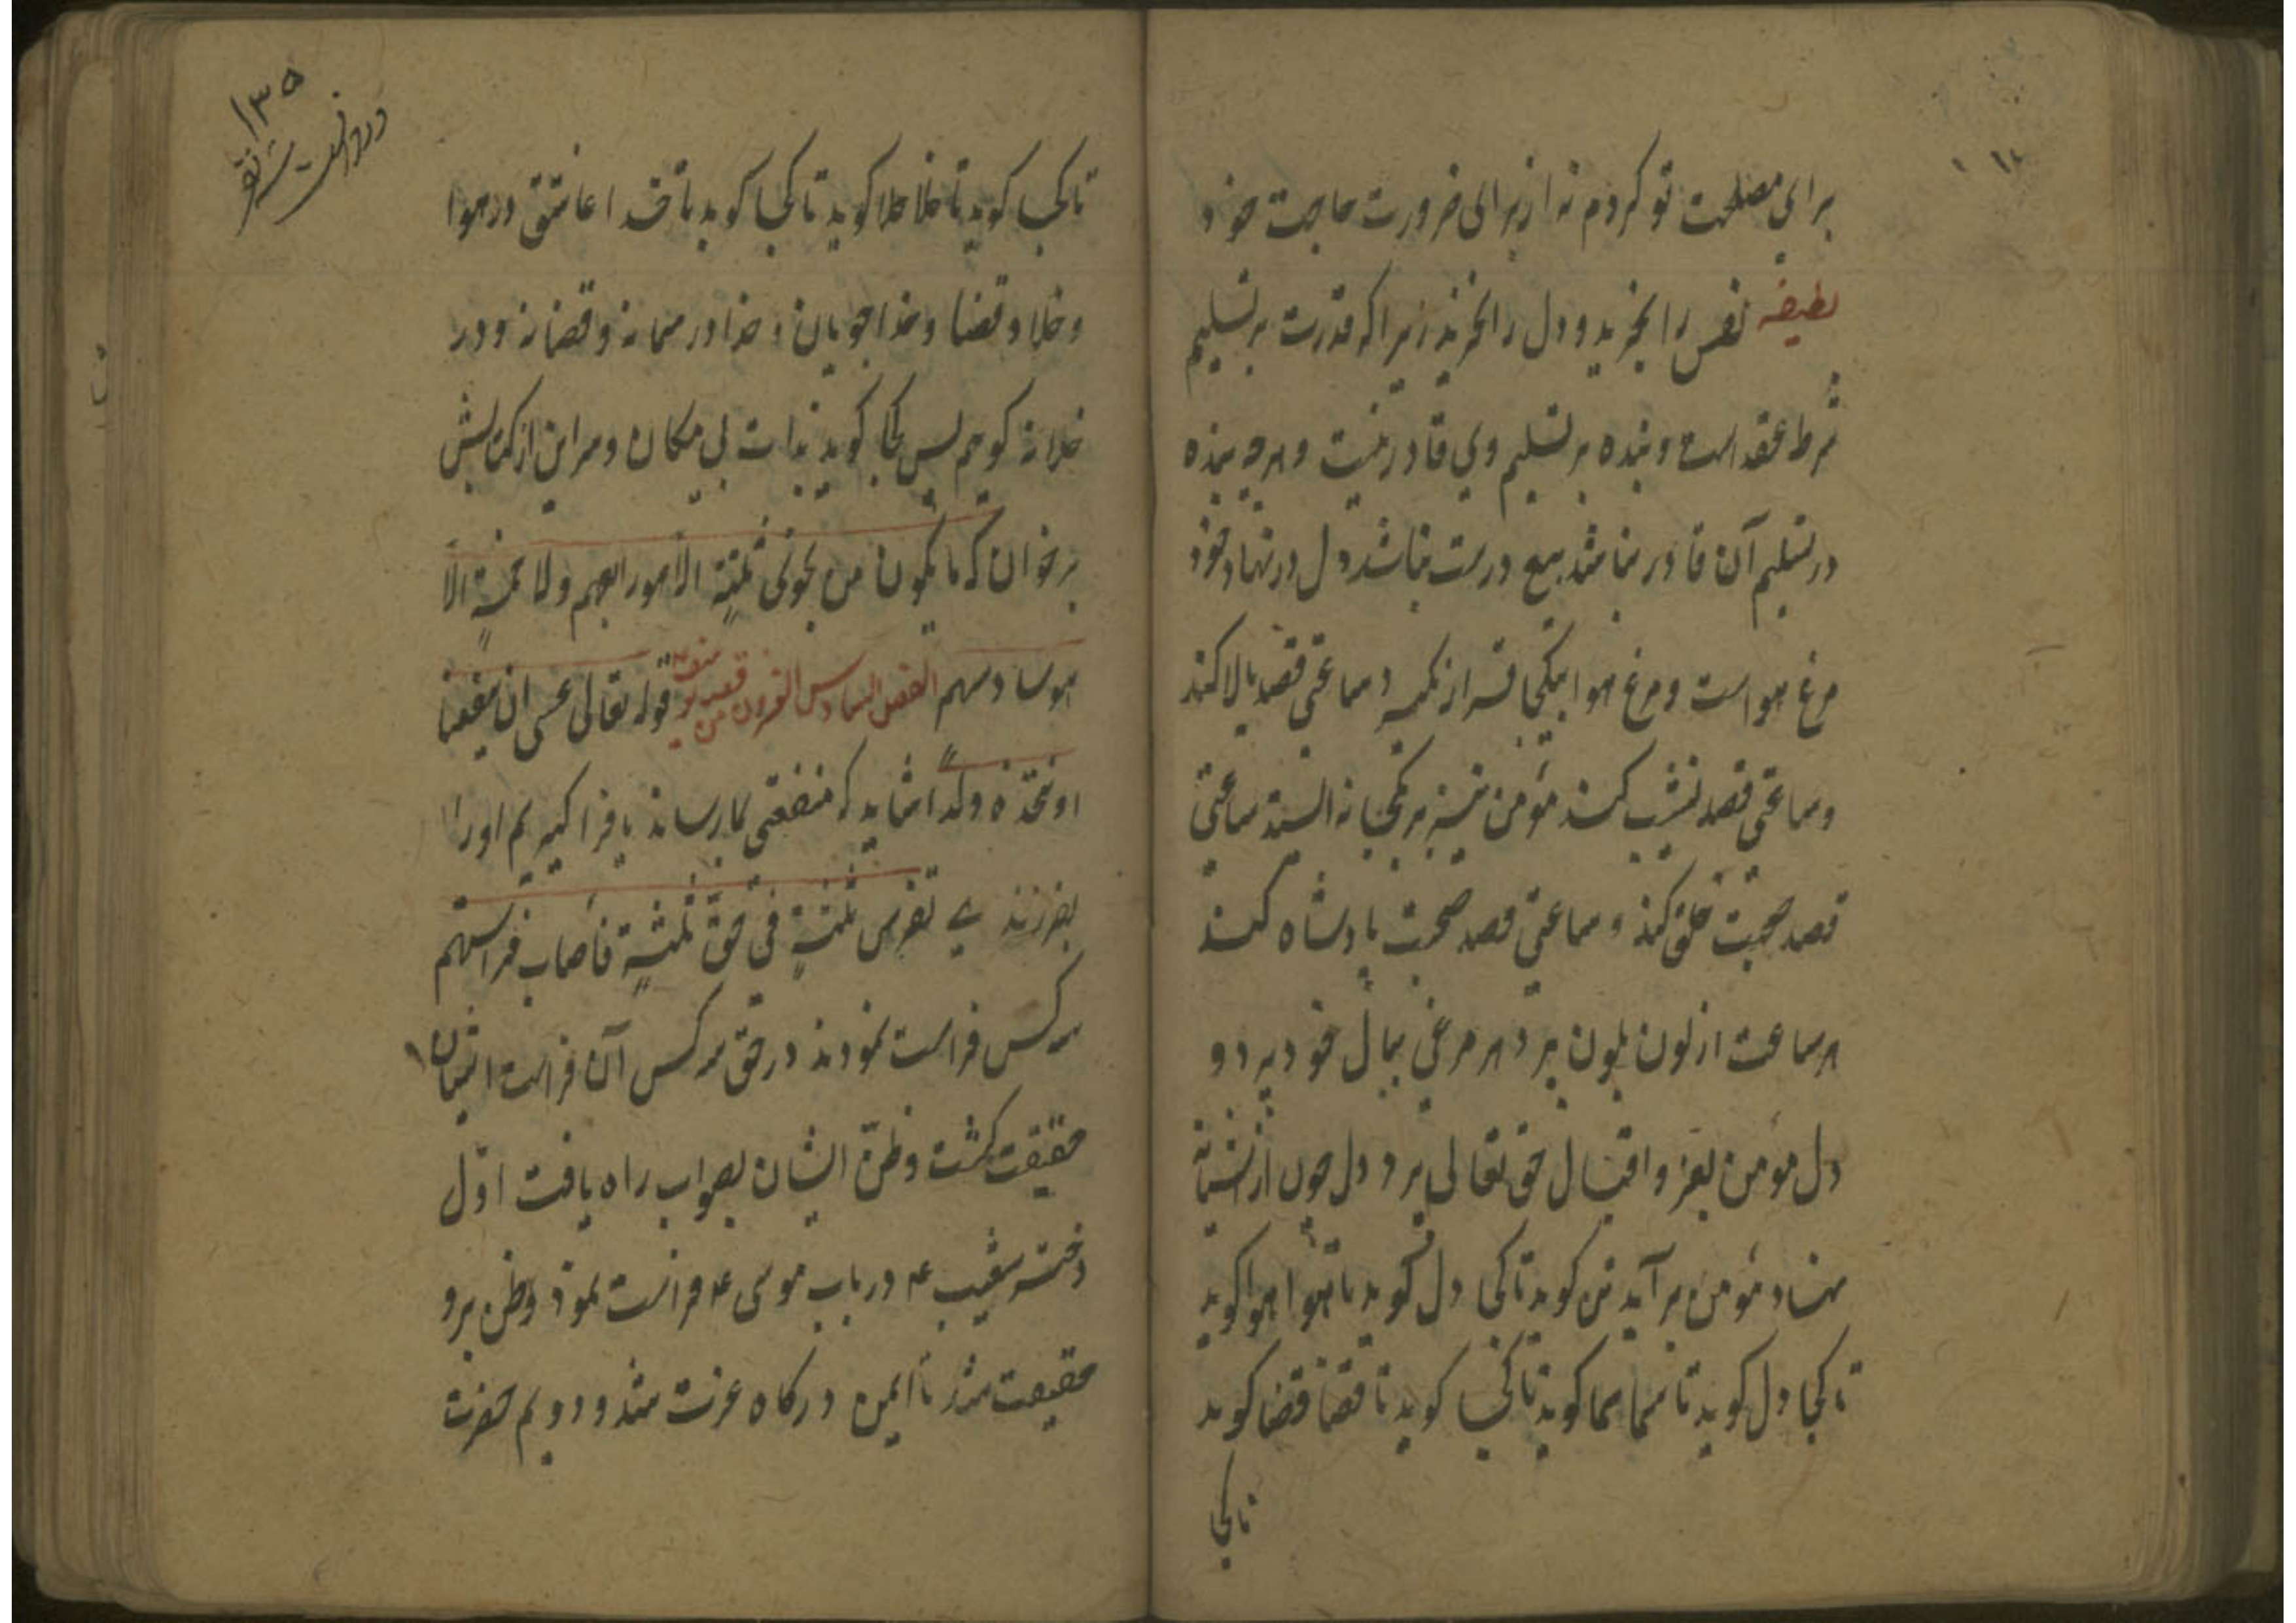 برای مصلحت تو کردم نه از برای ضرورت حاجت خود
لطیفه نفس را بخرید و دل را نخرید زیرا که قدرت بر تسلیم
شرط عقد است و بنده بر تسلیم وی قادر نیست و هرچه بنده
در تسلیم آن قادر نباشد بیع درست نباشد دل در نهاد خود
مرغ هواست و مرغ هوا بیکجا قرار نگیرد ساعتی قصد بالا کند
و ساعتی قصد نشیب کند مؤمن نیز بر یکجا نه ایستد ساعتی
قصد صحبت خلق کند و ساعتی قصد صحبت پادشاه کند
هر ساعت از لون بلون پرد هر مرغی ببال خود پرد و
دل مؤمن بعز و اقبال حق تعالی پرد دل چون از آشیانه
نهاد مؤمن برآید تن کوید تا کجا دل کوید تا هوا هوا کوید
تا کجا دل کوید تا سما سما کوید تا کجا کوید تا قضا قضا کوید
تا کجا
۱۳۵
تا کجا کوید تا خلا خلا کوید تا کجا کوید تا خدا عاشق در هوا
و خلا و قضا و خدا جویان و خدا در سما نه و قضا نه و در
خلا نه کویم پس کجا کوید بذات بی مکان و سر این از کتابش
برخوان که ما یکون من نجوی ثلثة الا هو رابعهم ولا خمسة الا
هو سادسهم الفصل السادس القرون من قصه یوسف قوله تعالی عسی ان ینفعنا
او نتخذه ولدا شاید که منفعتی بما رساند یا فرا کیریم او را
بفرزندی تفرس ثلثة فی حق ثلثة فأصاب فراستهم
سه کس فراست نمودند در حق سه کس آن فراست ایشان
حقیقت کشت و ظن ایشان بصواب راه یافت اول
دختر شعیب ع در باب موسی ع فراست نمود و ظن برو
حقیقت شد تا امین درکاه عزت شد و دویم حضرت